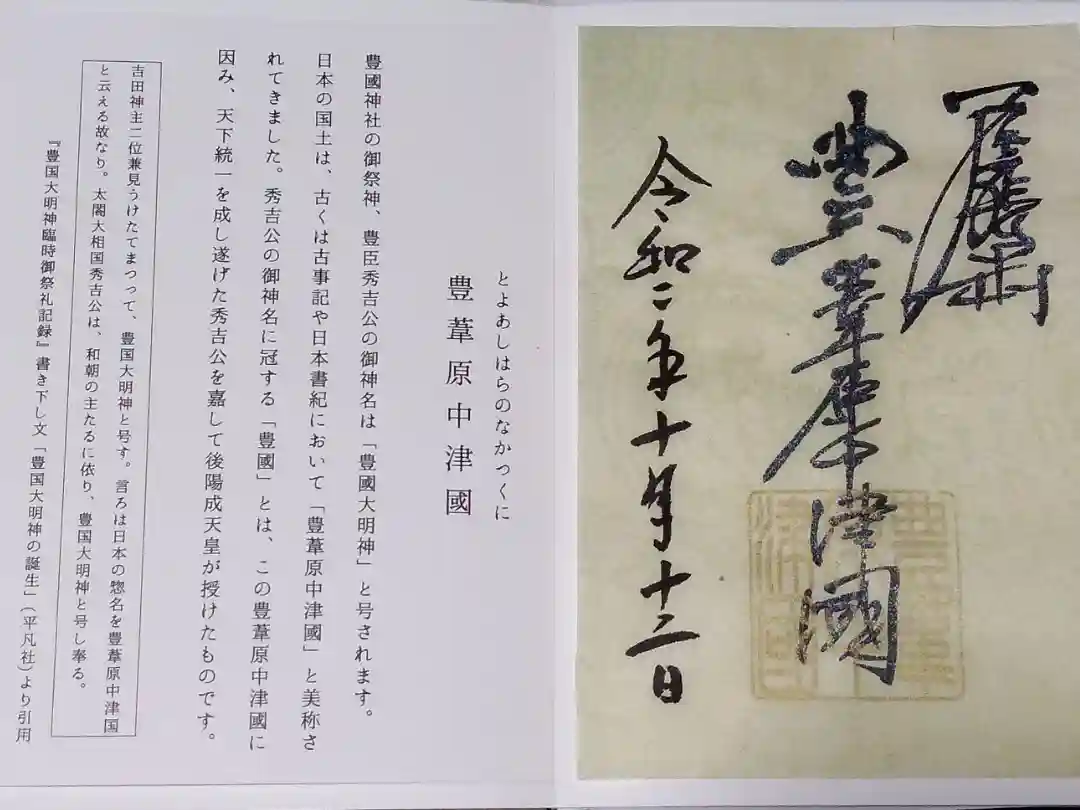 豊葦原中津國
令和二年十月十三日
とよあしはらのなかつくに
豊葦原中津國
豊國神社の御祭神、豊臣秀吉公の御神名は「豊國大明神」と号されます。
日本の国土は、古くは古事記や日本書紀において「豊葦原中津國」と美称さ
れてきました。秀吉公の御神名に冠する「豊國」とは、この豊葦原中津國に
因み、天下統一を成し遂げた秀吉公を嘉して後陽成天皇が授けたものです。
吉田神主二位兼見うけたてまつって、豊国大明神と号す。言ろは日本の惣名を豊葦原中津国
と云える故なり。太閤大相国秀吉公は、和朝の主たるに依り、豊国大明神と号し奉る。
『豊国大明神臨時御祭礼記録』書き下し文「豊国大明神の誕生」(平凡社)より引用